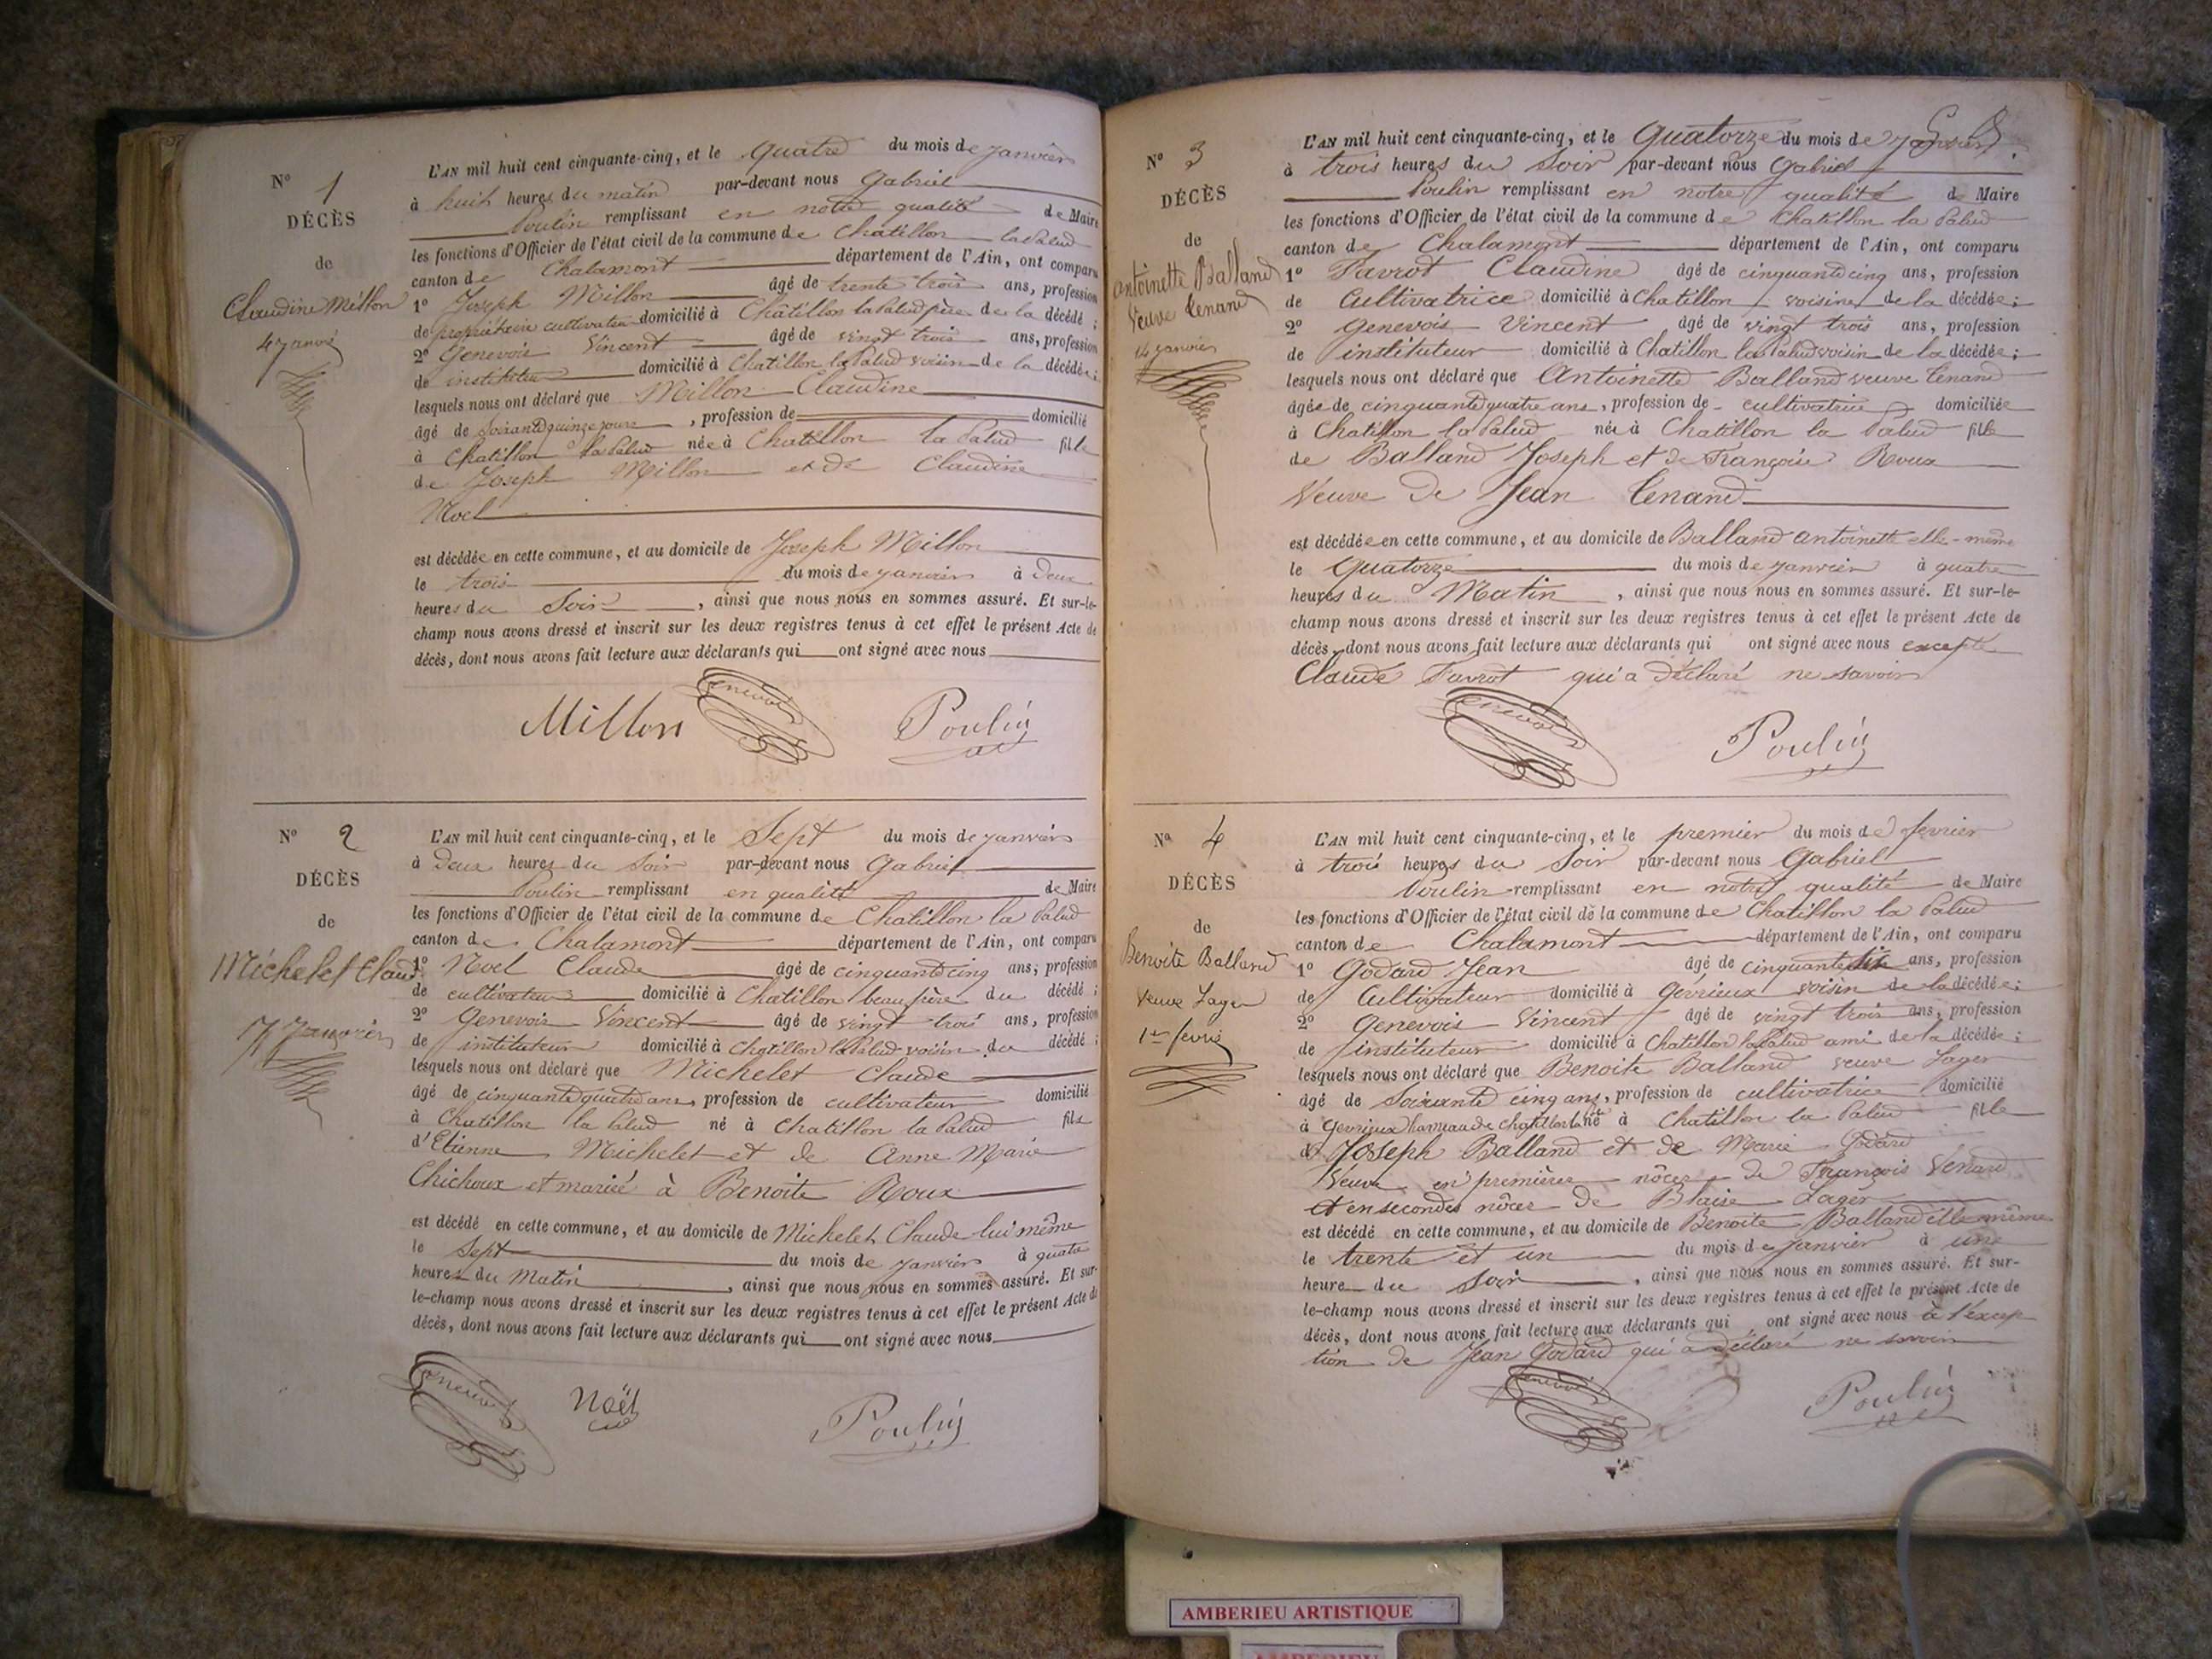 N° 1
DÉCÈS
de
Claudine Millon
4 janvier
L'AN mil huit cent cinquante-cinq, et le quatre du mois de janvier
à huit heures du matin par-devant nous Gabriel
Poulin remplissant en notre qualité de Maire
les fonctions d'Officier de l'état civil de la commune de Châtillon la Palud
canton de Chalamont département de l'Ain, ont comparu
1° Joseph Millon âgé de trente trois ans, profession
de propriétaire cultivateur domicilié à Châtillon la Palud père de la décédé ;
2° Genevois Vincent âgé de vingt trois ans, profession
de instituteur domicilié à Chatillon la Palud voisin de la décédée ;
lesquels nous ont déclaré que Millon Claudine
âgé de soixante quinze jours , profession de domicilié
à Chatillon la Palud née à Chatillon la Palud fille
de Joseph Millon et de Claudine
Noel
est décédée en cette commune, et au domicile de Joseph Millon
le trois du mois de janvier à deux
heures du Soir , ainsi que nous nous en sommes assuré. Et sur-le-
champ nous avons dressé et inscrit sur les deux registres tenus à cet effet le présent Acte de
décès, dont nous avons fait lecture aux déclarants qui ont signé avec nous
Millon Genevois Poulin
N° 2
DÉCÈS
de
Michelet Claud
7 Janvier
L'AN mil huit cent cinquante-cinq, et le Sept du mois de janvier
à deux heures du Soir par-devant nous Gabriel
Poulin remplissant en qualité de Maire
les fonctions d'Officier de l'état civil de la commune de Chatillon la Palud
canton de Chalamont département de l'Ain, ont comparu
1° Noel Claude âgé de cinquante cinq ans, profession
de cultivateur domicilié à Chatillon beau père du décédé ;
2° Genevois Vincent âgé de vingt trois ans, profession
de instituteur domicilié à Chatillon la Palud voisin du décédé ;
lesquels nous ont déclaré que Michelet Claude
âgé de cinquante quatre ans, profession de cultivateur domicilié
à Chatillon la Palud né à Chatillon la Palud fils
d'Etienne Michelet et de Anne Marie
Chichoux et marié à Benoite Roux
est décédé en cette commune, et au domicile de Michelet Claude lui même
le Sept du mois de janvier à quatre
heures du Matin , ainsi que nous nous en sommes assuré. Et sur-
le-champ nous avons dressé et inscrit sur les deux registres tenus à cet effet le présent Acte de
décès, dont nous avons fait lecture aux déclarants qui ont signé avec nous
Genevois Noël Poulin
N° 3
DÉCÈS
de
Antoinette Balland
Veuve Tenand
14 janvier
L'AN mil huit cent cinquante-cinq, et le Quatorze du mois de janvier
à trois heures du Soir par-devant nous Gabriel
Poulin remplissant en notre qualité de Maire
les fonctions d'Officier de l'état civil de la commune de Chatillon la Palud
canton de Chalamont département de l'Ain, ont comparu
1° Favrot Claudine âgé de cinquante cinq ans, profession
de Cultivatrice domicilié à Chatillon voisine de la décédée ;
2° Genevois Vincent âgé de vingt trois ans, profession
de instituteur domicilié à Chatillon la Palud voisin de la décédée ;
lesquels nous ont déclaré que Antoinette Balland veuve Tenand
âgée de cinquante quatre ans, profession de cultivatrice domiciliée
à Chatillon la Palud née à Chatillon la Palud fille
de Balland Joseph et de Françoise Roux
Veuve de Jean Tenand
est décédée en cette commune, et au domicile de Balland Antoinette elle-même
le Quatorze du mois de janvier à quatre
heures du Matin , ainsi que nous nous en sommes assuré. Et sur-le-
champ nous avons dressé et inscrit sur les deux registres tenus à cet effet le présent Acte de
décès, dont nous avons fait lecture aux déclarants qui ont signé avec nous excepté
Claude Favrot qui a déclaré ne savoir
Genevois Poulin
N° 4
DÉCÈS
de
Benoite Balland
Veuve Lager
1er fevrier
L'AN mil huit cent cinquante-cinq, et le premier du mois de fevrier
à trois heures du Soir par-devant nous Gabriel
Poulin remplissant en notre qualité de Maire
les fonctions d'Officier de l'état civil de la commune de Chatillon la Palud
canton de Chalamont département de l'Ain, ont comparu
1° Godard Jean âgé de cinquante six ans, profession
de Cultivateur domicilié à Gévrieux voisin de la décédée ;
2° Genevois Vincent âgé de vingt trois ans, profession
de instituteur domicilié à Chatillon la Palud ami de la décédée ;
lesquels nous ont déclaré que Benoite Balland veuve Lager
âgé de Soixante cinq ans, profession de cultivatrice domicilié
à Gevrieux hameau de Chatillon né à Chatillon la Palud fille
de Joseph Balland et de Marie Godard
Veuve en premières nôces de François Venard
et en secondes nôces de Blaise Lager
est décédé en cette commune, et au domicile de Benoite Balland elle même
le trente et un du mois de janvier à une
heure du Soir , ainsi que nous nous en sommes assuré. Et sur-
le-champ nous avons dressé et inscrit sur les deux registres tenus à cet effet le présent Acte de
décès, dont nous avons fait lecture aux déclarants qui ont signé avec nous à l'excep
tion de Jean Godard qui a déclaré ne savoir
Genevois Poulin
AMBERIEU ARTISTIQUE
AMBERIEU